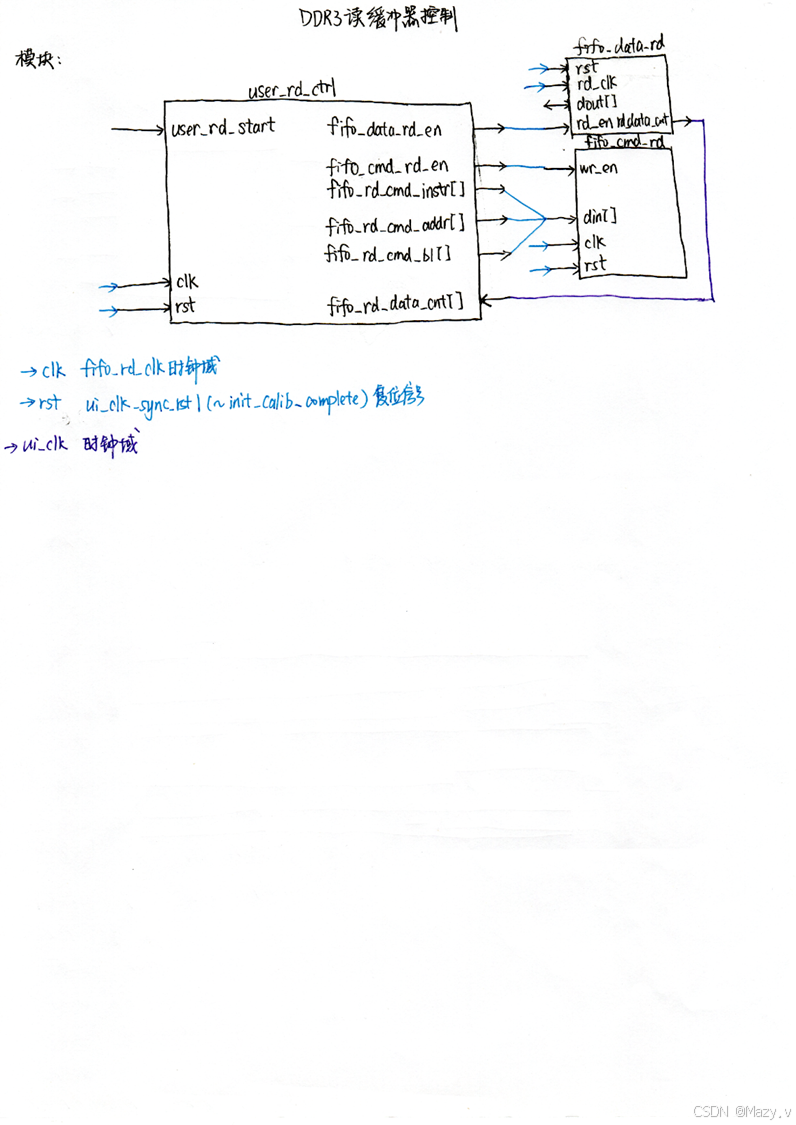 DDR3读缓冲器控制
模块:
user_rd_ctrl
user_rd_start
clk
rst
fifo_data_rd_en
fifo_cmd_rd_en
fifo_rd_cmd_instr[]
fifo_rd_cmd_addr[]
fifo_rd_cmd_bl[]
fifo_rd_data_cnt[]
fifo_data_rd
rst
rd_clk
dout[]
rd_en rd_data_cnt
fifo_cmd_rd
wr_en
din[]
clk
rst
→clk fifo_rd_clk时钟域
→rst ui_clk_sync_rst|(~init_calib_complete)复位信号
→ui_clk 时钟域
CSDN @Mazy.v